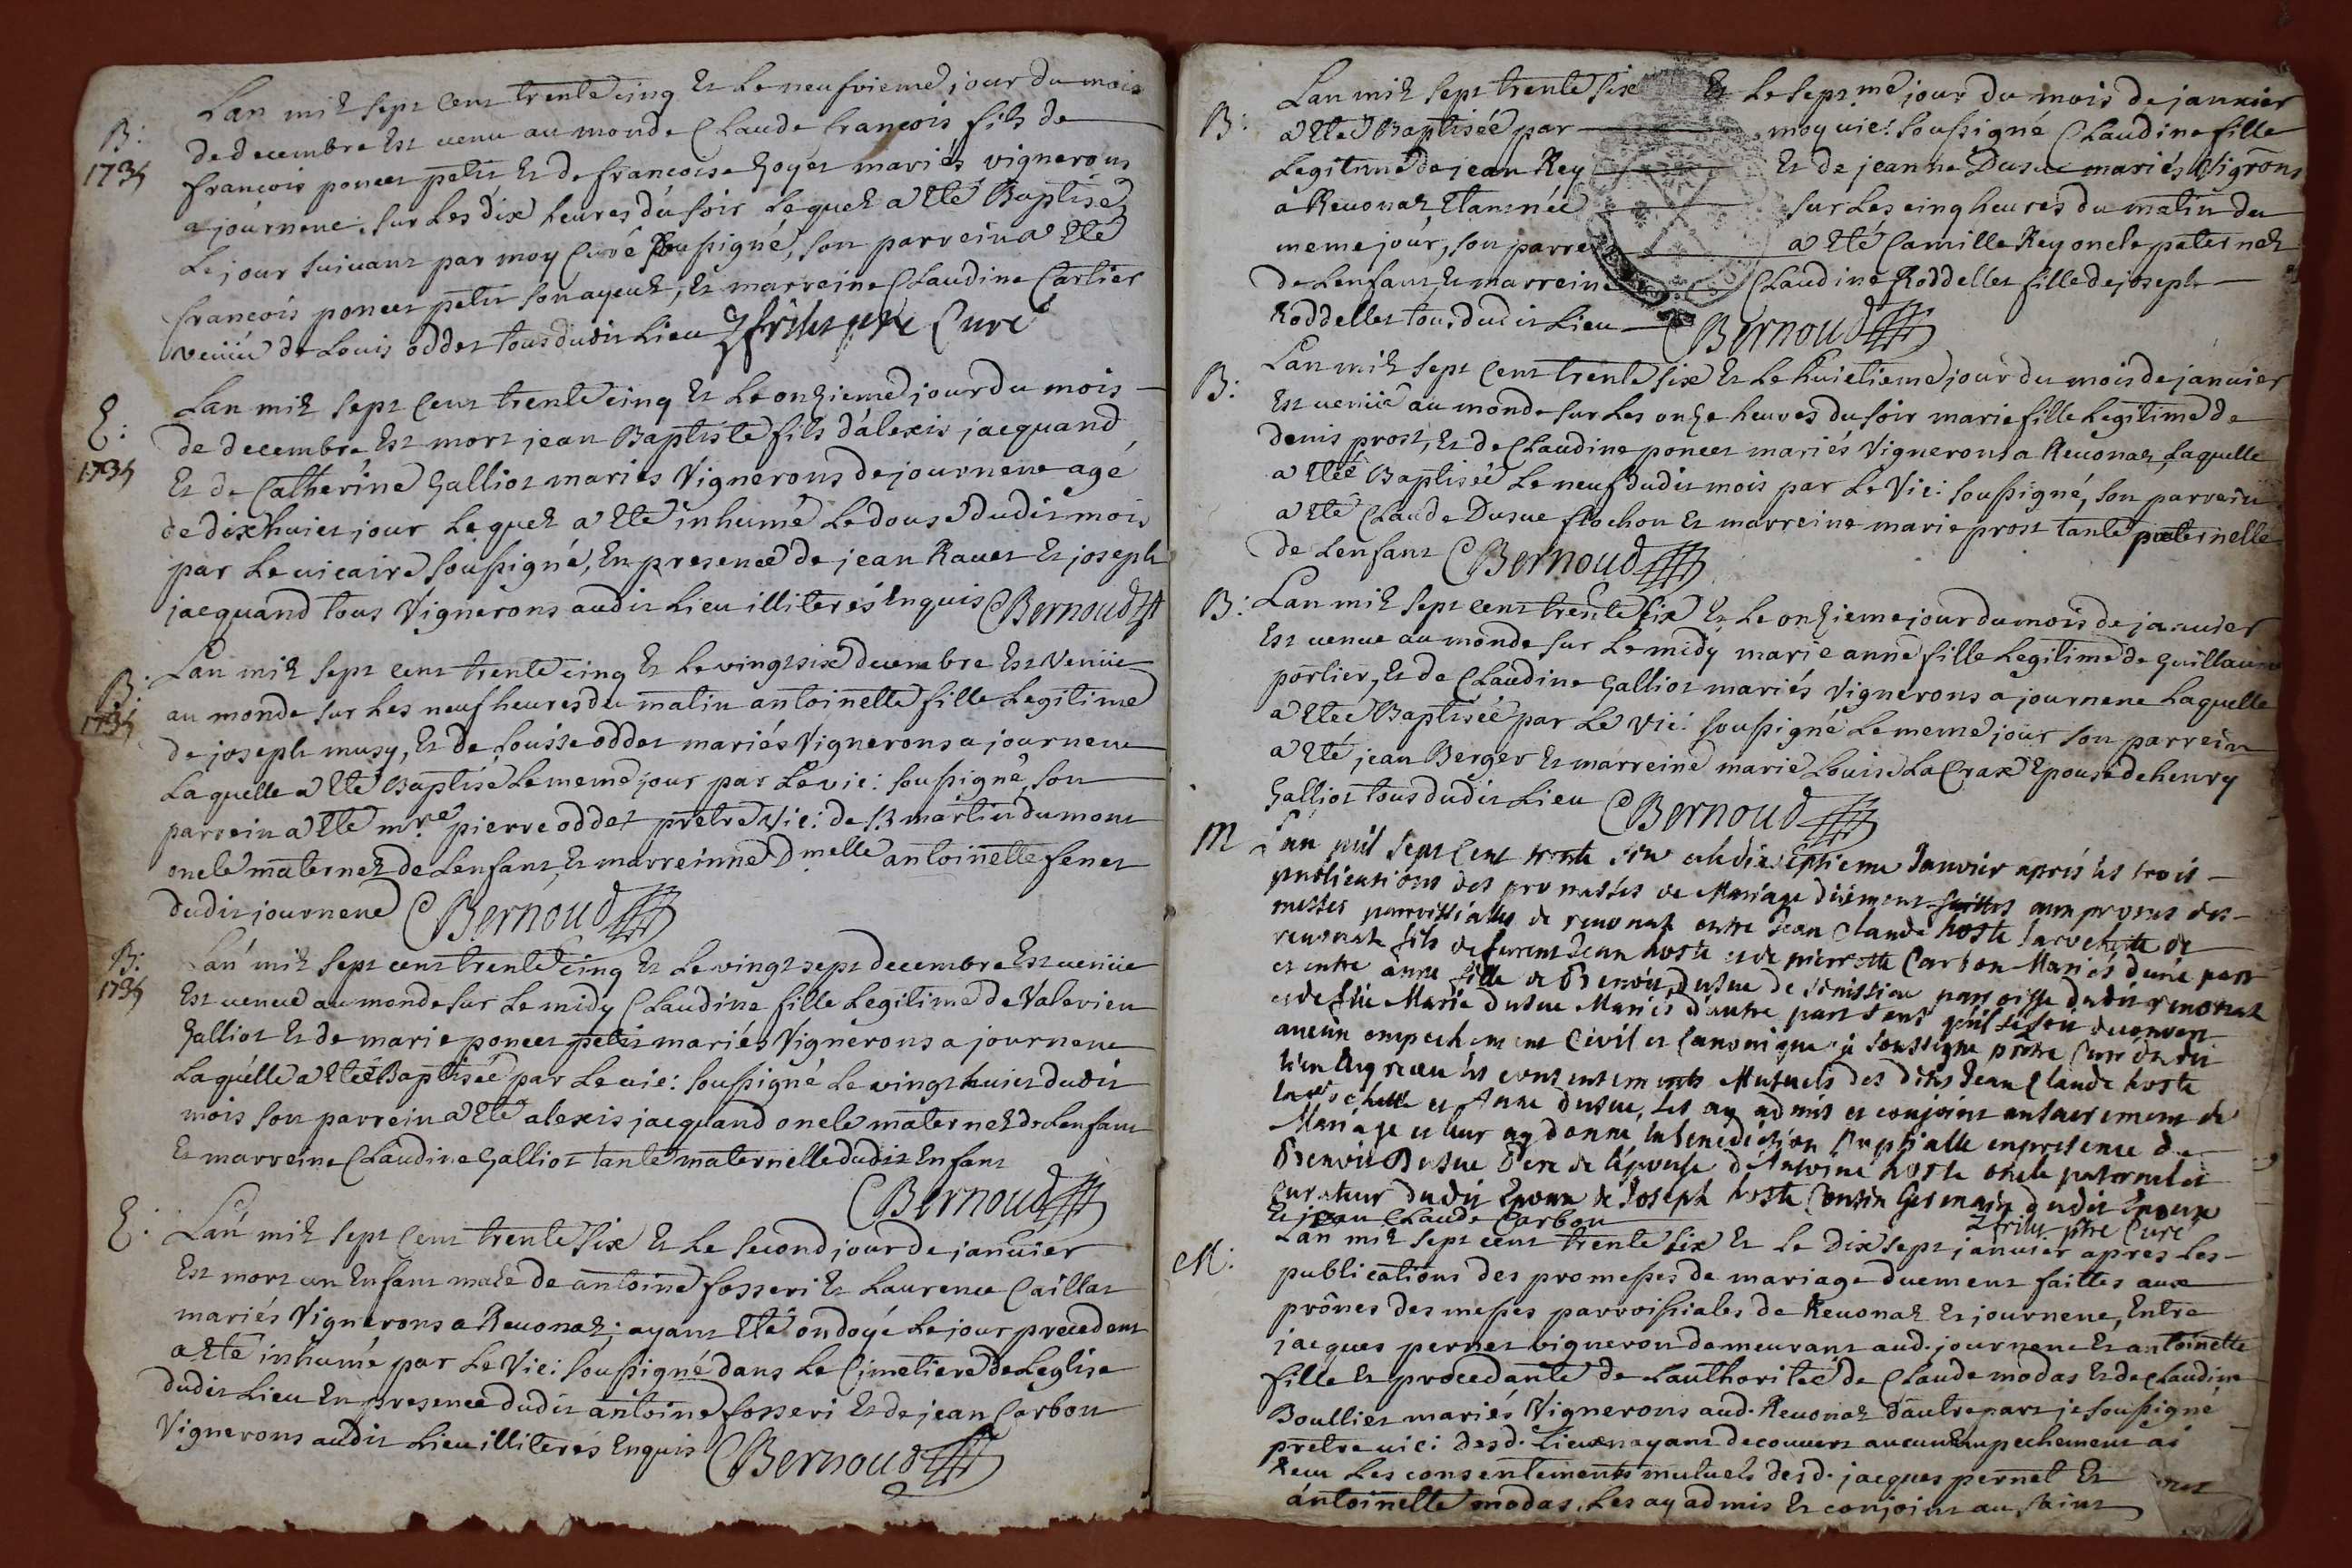 Lan mil sept cent trente cinq Et Le neufvieme jour du mois
B:
1735
de decembre Est venu au monde Claude francois fils de
francois poncet petit Et de francoise Goyet mariés vignerons
a journene; sur Les dix heures du soir Lequel a Eté Baptisé
Le jour suivant par moy Curé soussigné, son parrein a Eté
francois poncet petit son ayeul, Et marreine Claudine Cartier
veuüe de Louis oddet tous dudit Lieu ptre Curé
E:
1735
Lan mil sept Cent trente cinq Et Le onzieme jour du mois
de decembre Est mort jean Baptiste fils d'alexis jacquand
Et de Catherine Galliot mariés Vignerons de journene agé
de dix huict jour Lequel a Eté inhumé Le douse dudit mois
par Le vicaire soussigné, En presence de jean Ravet Et joseph
jacquand tous Vignerons audit Lieu illiterés Enquis Bernoud
B:
1735
Lan mil sept cent trente cinq Et Le vingt six decembre Est Venüe
au monde sur Les neuf heures du matin antoinette fille Legitime
de joseph musy, Et de Louise oddet mariés Vignerons a journene
Laquelle a Eté Baptisé Le meme jour par Le vic: soussigné, son
parrein a Eté mre pierre oddet pretre Vic: de St martin du mont
oncle maternel de Lenfant, Et marreinne Dmelle antoinette fenet
dudit journene Bernoud
B:
1735
Lan mil sept cent trente cinq Et Le vingt sept decembre Est venüe
Est venue au monde sur Le midy Claudine fille Legitime de Valerien
Galliot Et de marie poncet petit mariés Vignerons a journene
Laquelle a Eté Baptisée par Le vic: soussigné Le vingt huict dudit
mois son parrein a Eté alexis jacquand oncle maternel de Lenfant
Et marreine Claudine Galliot tante maternelle dudit Enfant
Bernoud
E:
Lan mil sept Cent trente six Et Le second jour de janvier
Est mort un Enfant male de antoine fosseri Et Laurence Caillat
mariés Vignerons a Revonaz; ayant Eté ondoyé Le jour precedent
a Eté inhumé par Le Vic: soussigné dans Le Cimetiere de Leglise
dudit Lieu En presence dudit antoine fosseri Et de jean Carbon
Vignerons audit Lieu illiterés Enquis Bernoud
B:
Lan mil sept trente six Et Le sept.me jour du mois de janvier
a Eté Baptisée par moy vic: soussigné Claudine fille
Legitime de jean Rey Et de jeanne Dusue mariés Vigrons
a Revonaz Etant née sur Les cinq heures du matin du
meme jour, son parre a Eté Camille Rey oncle paternel
de Lenfant, Et marreine Claudine Roddellet fille de joseph
Roddellet tous dudit Lieu Bernoud
B:
Lan mil sept Cent trente six Et Le huictieme jour du mois de janvier
Est venüe au monde sur Les onze heures du soir marie fille Legitime de
denis prost, Et de Claudine poncet mariés Vignerons a Revonaz, Laquelle
a Etéé Baptisée Le neuf dudit mois par Le Vic: soussigné, son parrein
a Eté Claude Dusue flochon Et marreine marie prost tante paternelle
de Lenfant Bernoud
B:
Lan mil sept cent trente six Et Le onzieme jour du mois de janvier
Est venue au monde sur Le midy marie anne fille Legitime de Guillaume
portier, Et de Claudine Galliot mariés Vignerons a journene Laquelle
a Eteé Baptisée par Le Vic: soussigné Le meme jour son parrein
a Eté jean Berger Et marreine marie Louise La Crax Epouse de henry
Galliot tous dudit Lieu Bernoud
M
Lan mil sept Cent trente six et le dix septieme Janvier aprés les trois
publications des promesses de Mariage düement faittes aux prones des
messes parroissialles de revonaz entre Jean Claude hoste de
revonaz fils de furent Jean hoste et de pierrette Carbon Mariés d'une part
et entre anne fille de Benoit Dusue de paroisse dudit revonaz
et de Marie dusue Mariés d'autre part sans qu'il se soit decouvert
aucun empechement Civil et Canonique je soussigné pretre Curé dudit
lieu ay receu les consentements Mutuels des dits Jean Claude hoste
et Anne dusue, les ay admis et conjoint au sacrement de
Mariage et leur ay donné la benediction Nuptialle en presence de
Benoit Dusue Pere de l'épouse d'Antoine hoste oncle paternel et
Curateur dudit Epoux de Joseph hoste Cousin Germain dudit Epoux
Et jean Claude Carbon
ptre Curé
M:
Lan mil sept cent trente six Et Le Dix sept janvier apres Les
publications des promesses de mariage duement faittes aux
prônes des messes parroissiales de Revonaz Et journene, Entre
jacques pernet vigneron demeurant aud. journene Et antoinette
fille Et procedante de Lauthorité de Claude modas Et de Claudine
Boullier mariés Vignerons aud. Revonaz d'autre part je soussigné
pretre vic: desd. Lieux nayant decouvert aucun Empechement ai
Receu Les consentements mutuels desd. jacques pernet Et
antoinette modas, Les ay admis Et conjoint au saint